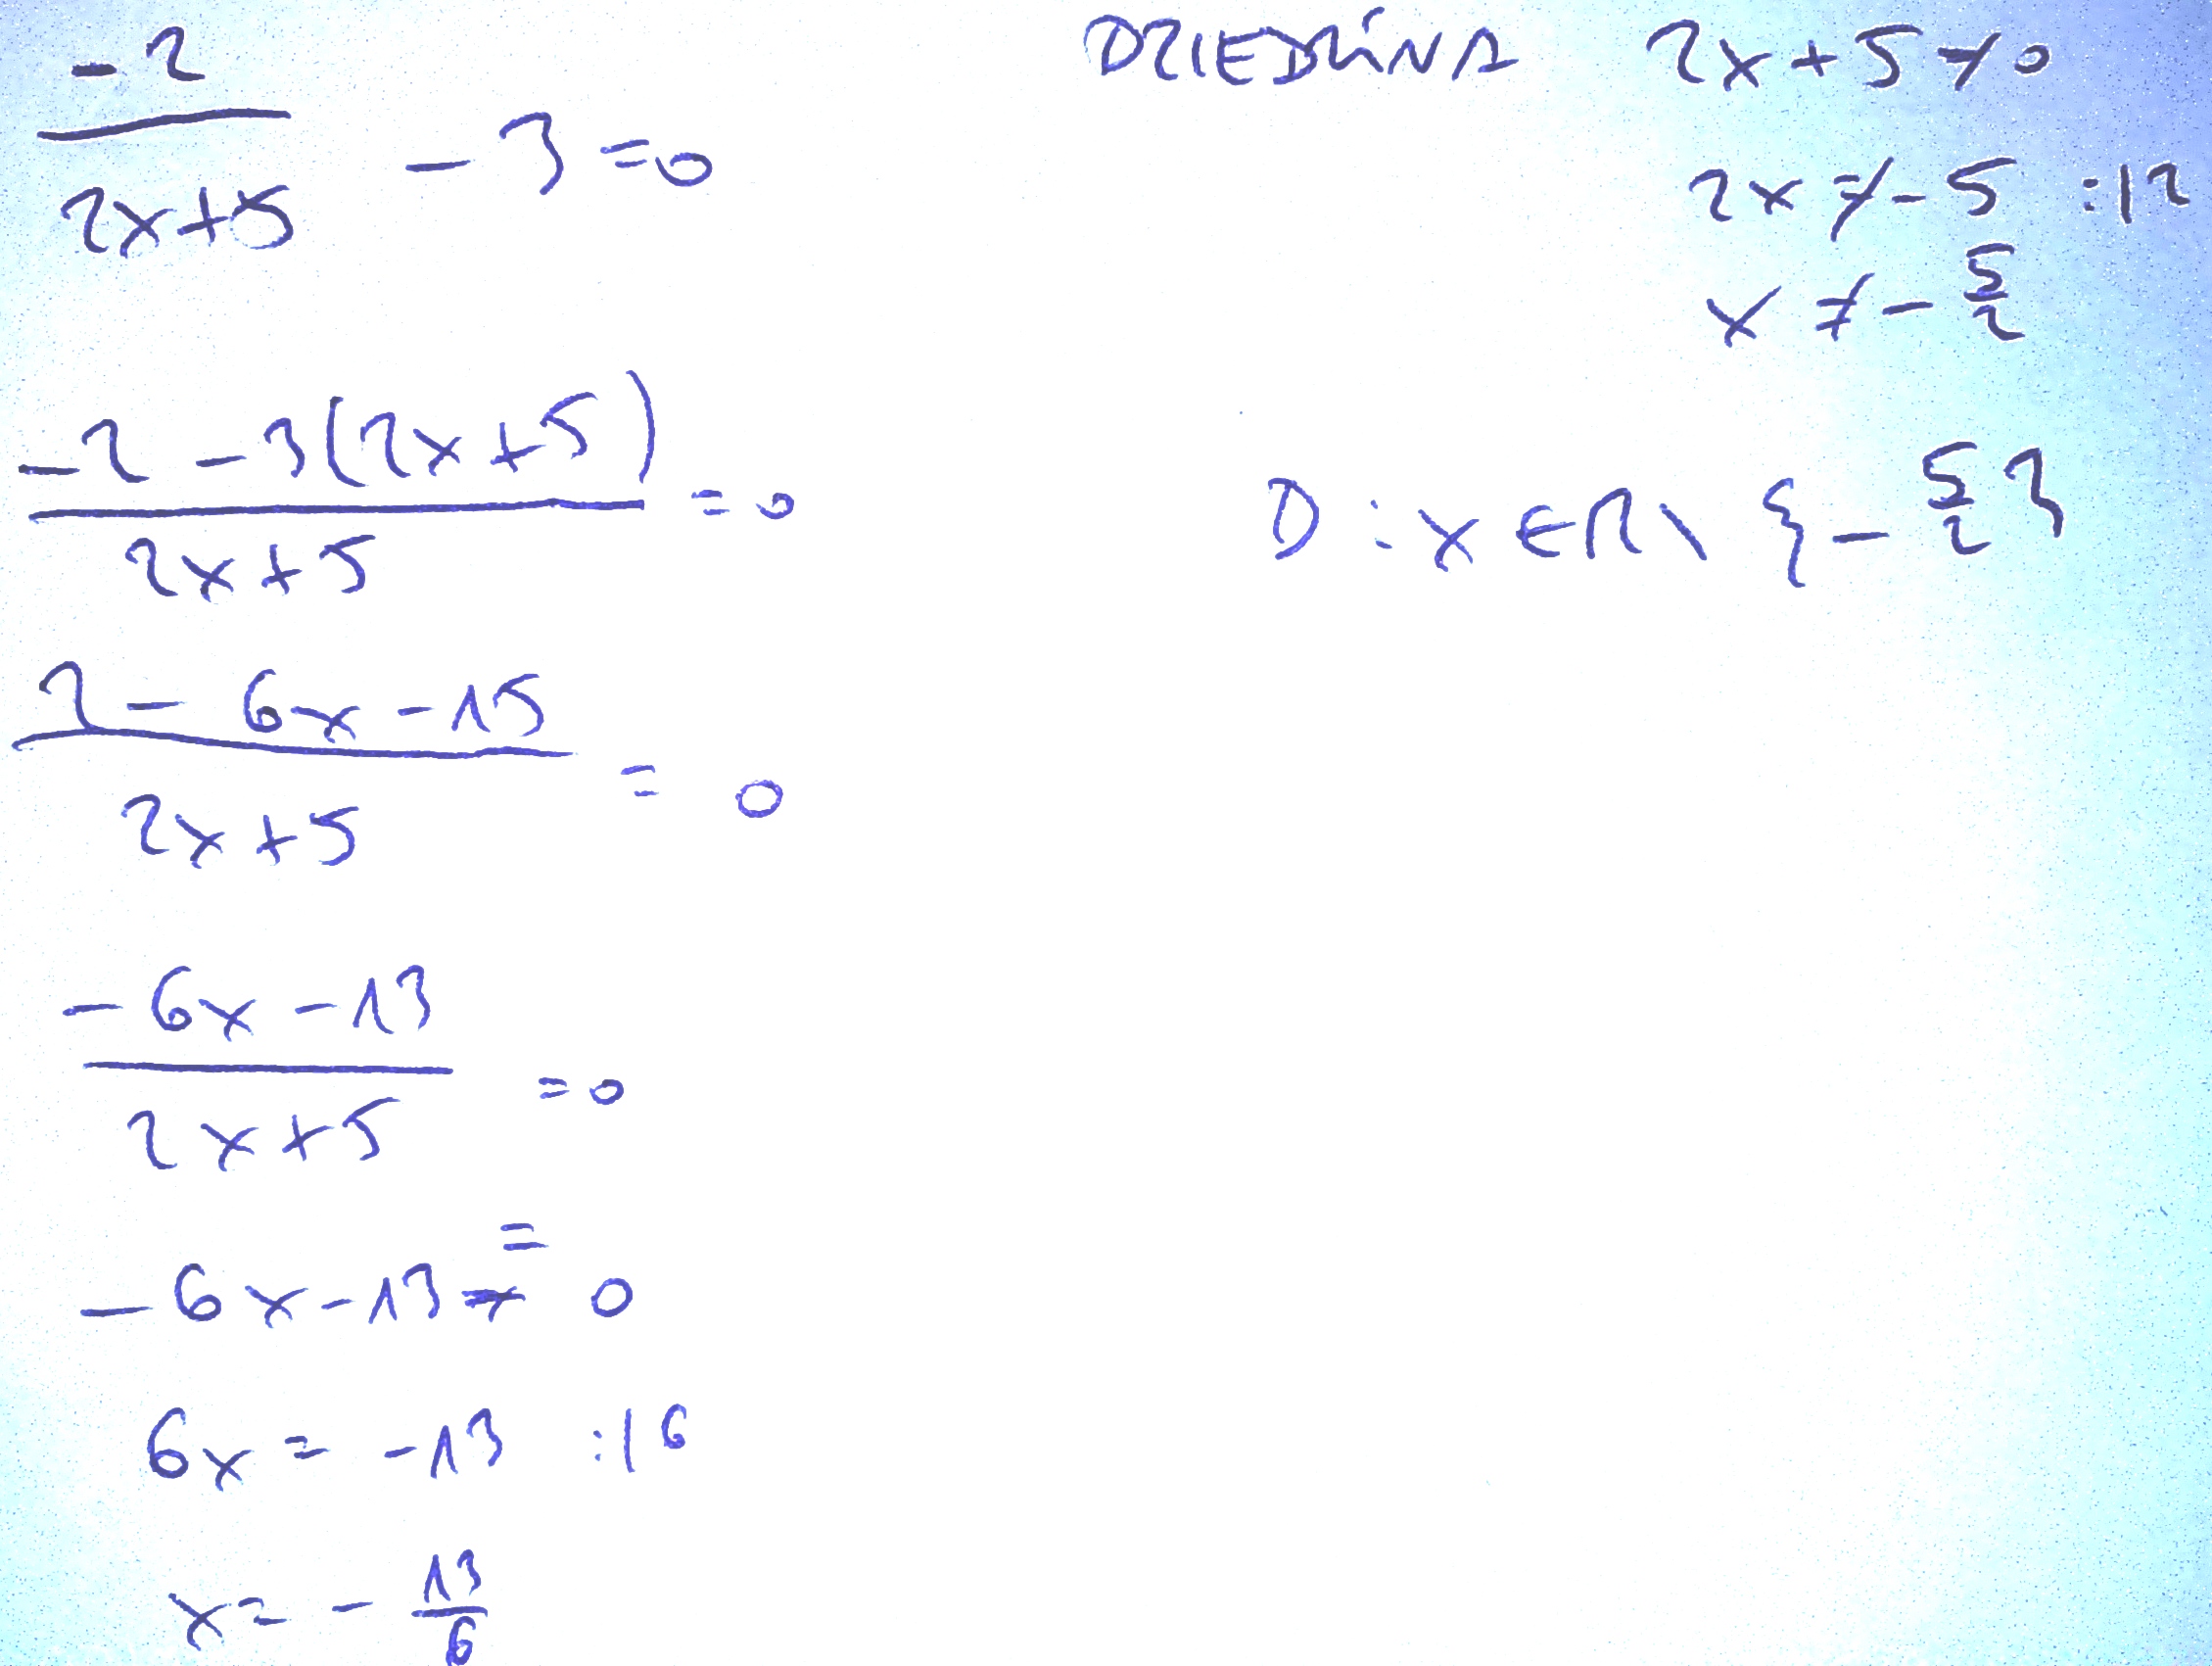 -2/(2x+5) - 3 = 0
DZIEDZINA 2x+5≠0
2x≠-5 :|2
x≠-5/2
(-2-3(2x+5))/(2x+5) = 0
D: x∈R\{-5/2}
(2-6x-15)/(2x+5) = 0
(-6x-13)/(2x+5) = 0
-6x-13 = 0
6x = -13 :|6
x = -13/6